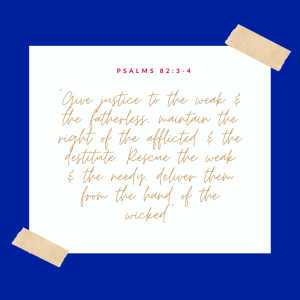 PSALMS 82:3-4
"Give justice to the weak &
the fatherless. maintain the
right of the afflicted & the
destitute. Rescue the weak
& the needy. deliver them
from the hand of the
wicked"